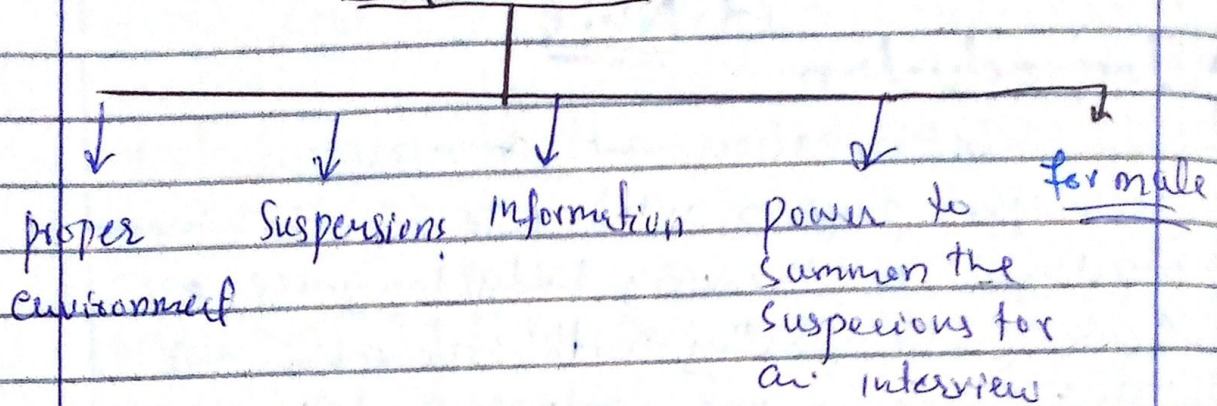 proper
environment
Suspensions
Information
power to
summon the
Suspecions for
an interview
for male